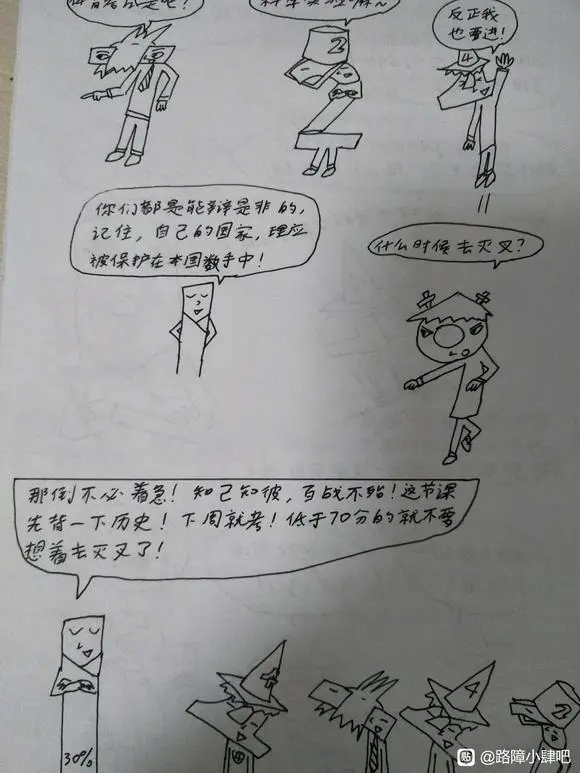 反正我
也要进!
2
4
你们都是能辩是非的,
记住,自己的国家,理应
被保护在本国数手中!
什么时候去灭叉?
那倒不必着急!知己知彼,百战不殆!这节课
先背一下历史!下周就考!低于70分的就不要
想着去灭叉了!
30%
4
2
贴 @路障小肆吧